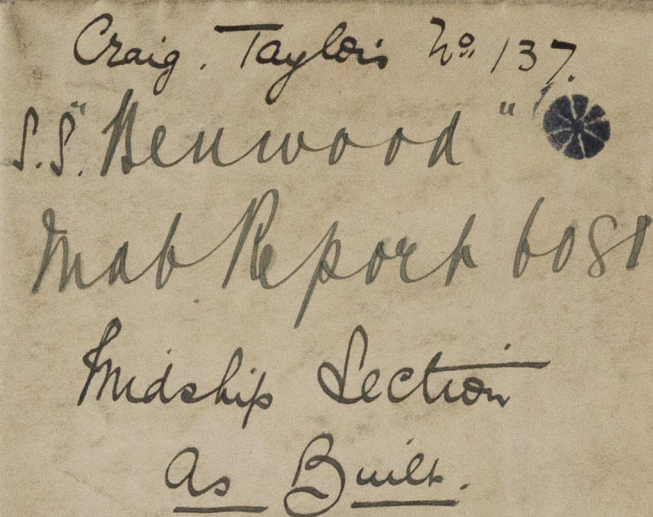 Craig. Taylor's No. 137.
S.S. "Benwood"
Mdb Report 6081
Midship Section
As Built.